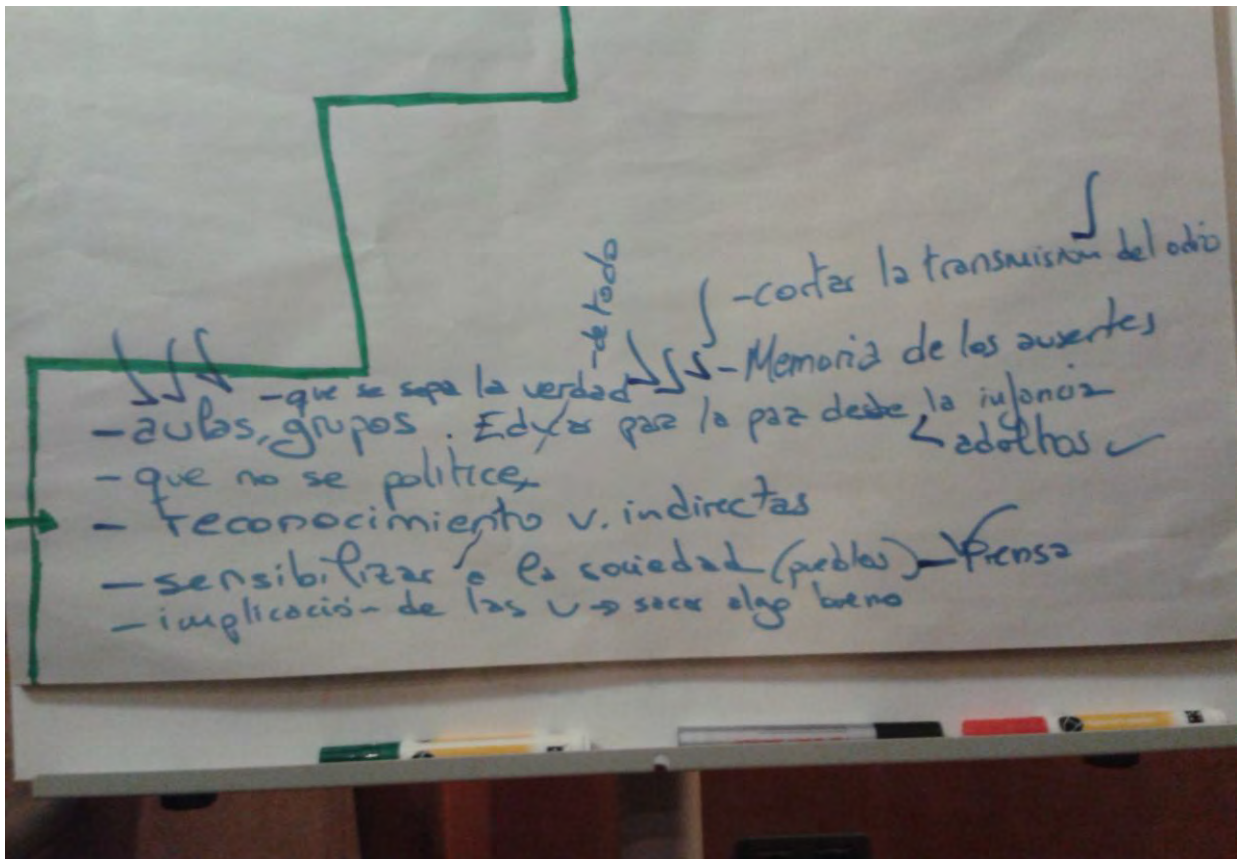 - cortar la transmisión del odio
- de todo
- que se sepa la verdad - Memoria de los ausentes
- aulas, grupos. Educar para la paz desde la infancia
< adultos ✓
- que no se politice
- reconocimiento v. indirectas
- sensibilizar a la sociedad (pueblos) - Prensa
- implicación de las v → sacar algo bueno